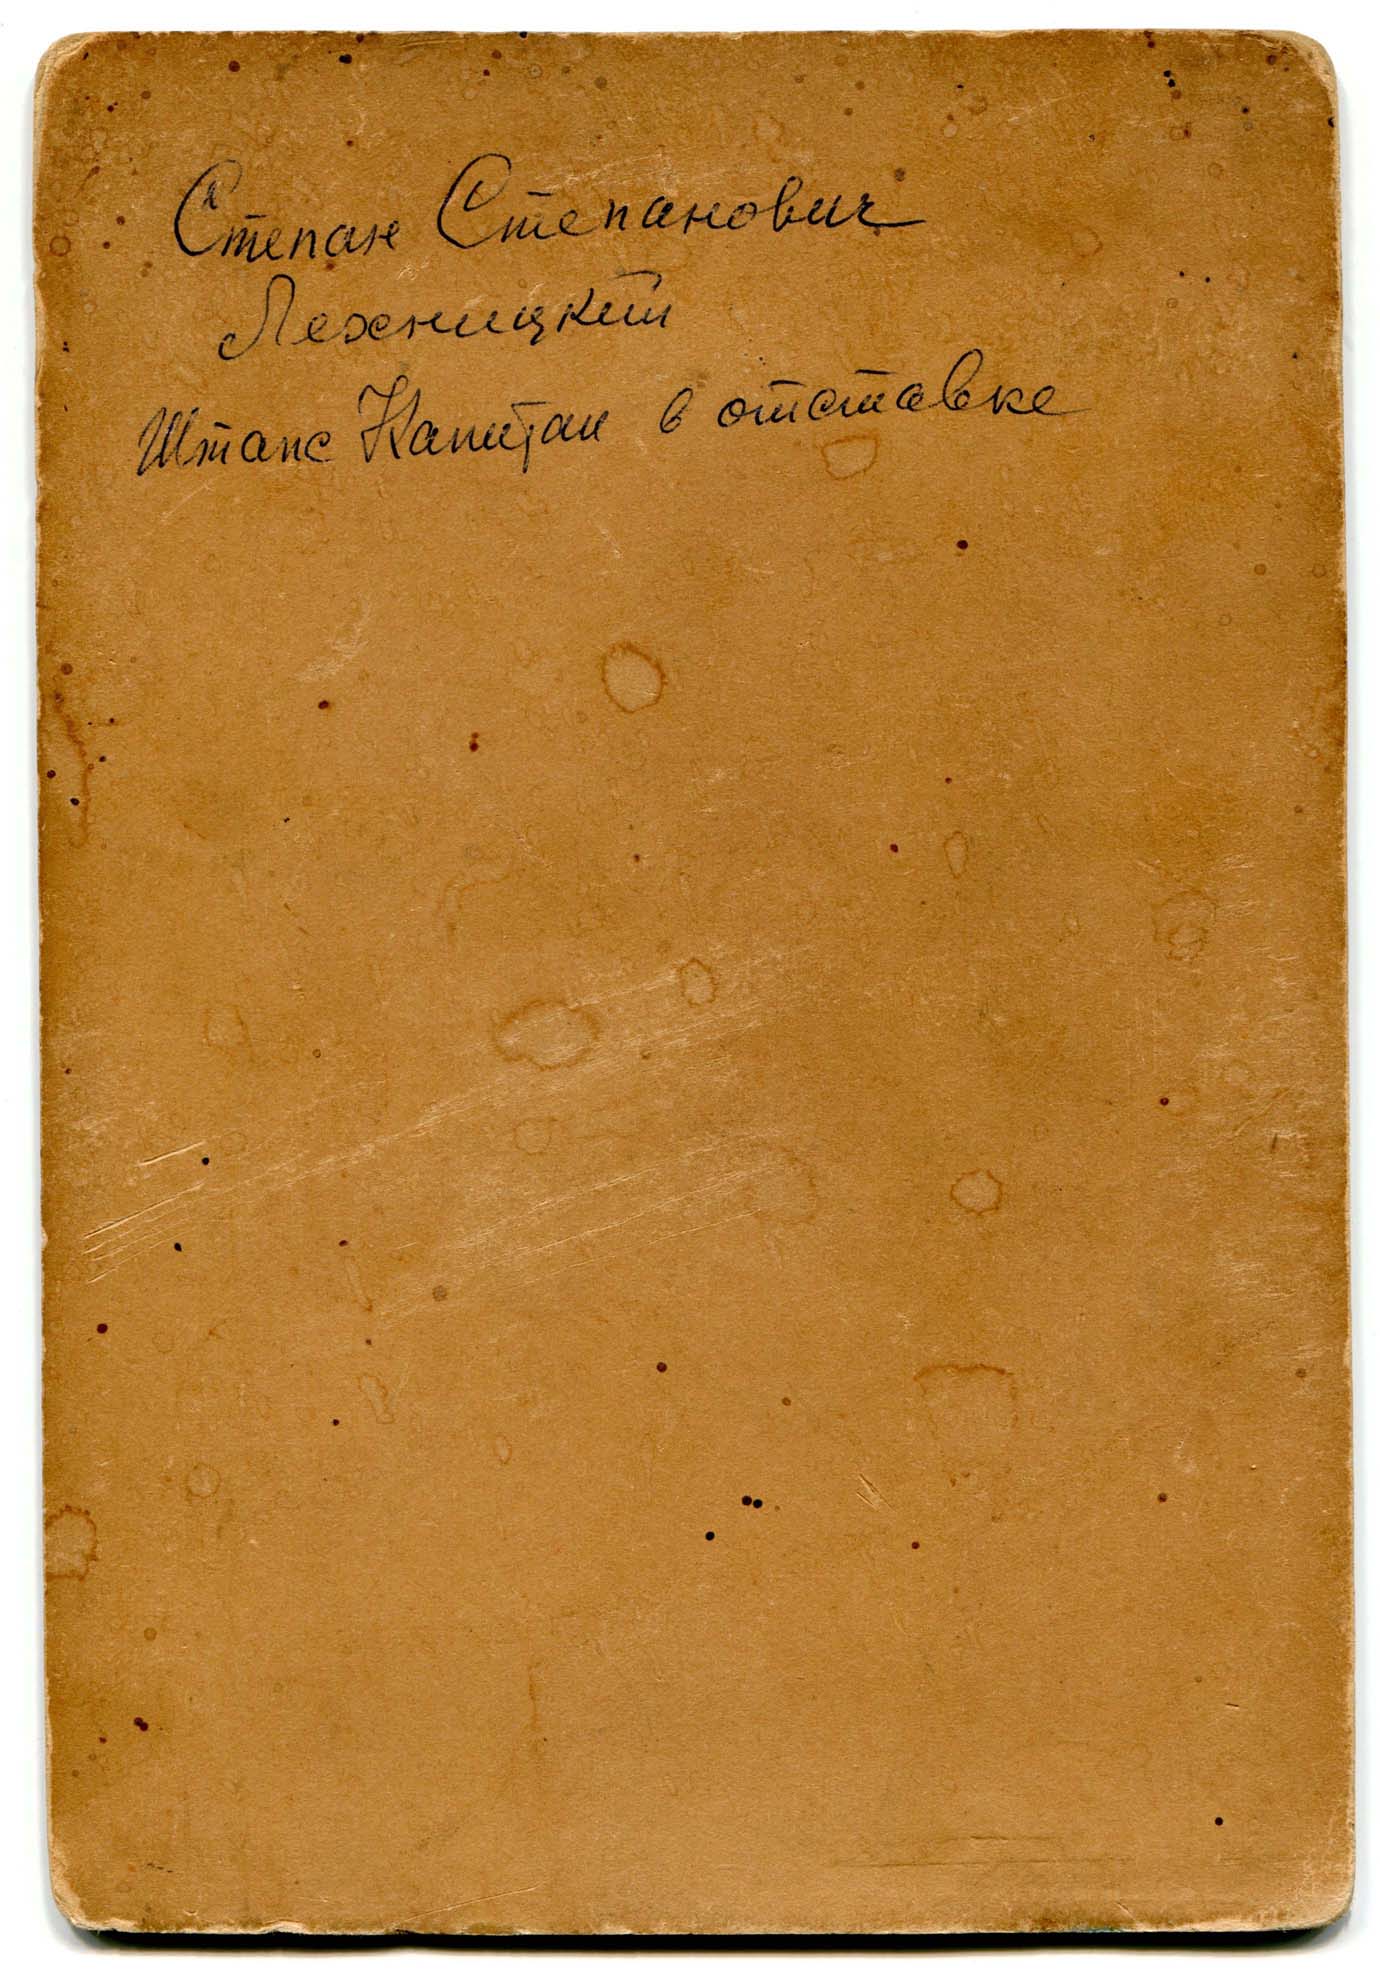 Степан Степанович
Лехницкий
Штапс Капитан в отставке